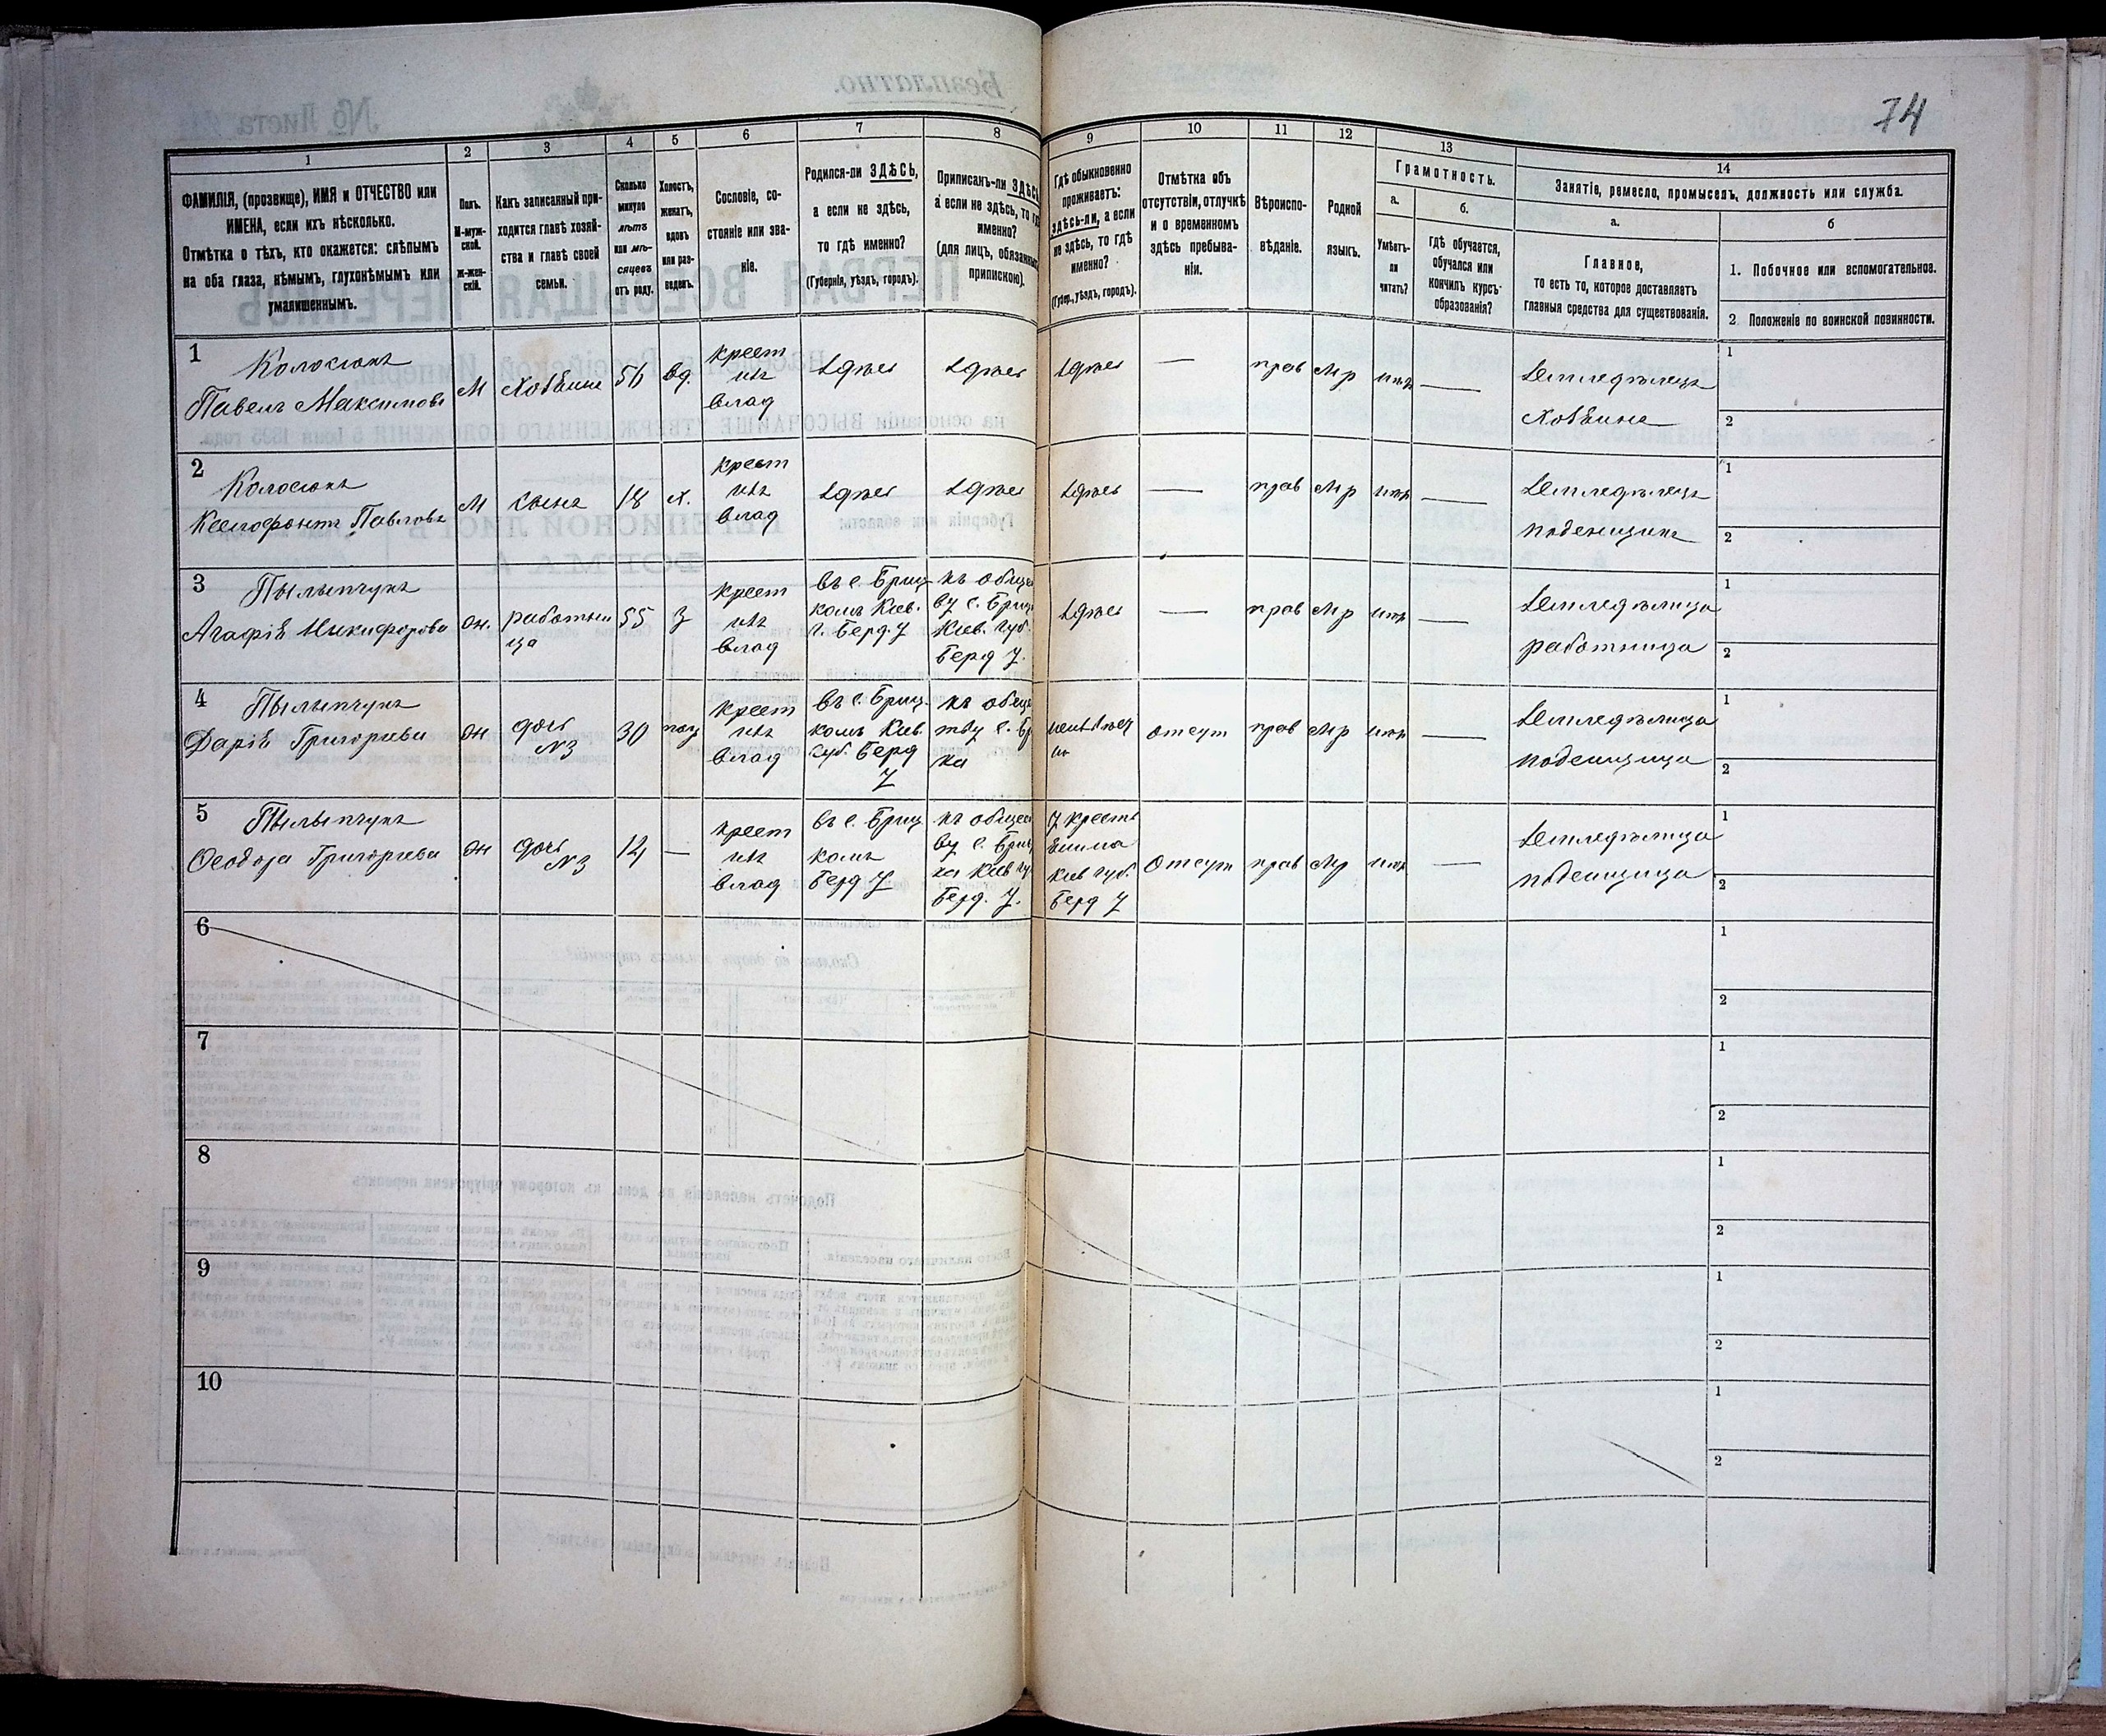 74
1
2
3
4
5
6
7
8
9
10
11
12
13
14
ФАМИЛІЯ, (прозвище), ИМЯ и ОТЧЕСТВО или
ИМЕНА, если ихъ нѣсколько.
Отмѣтка о тѣхъ, кто окажется: слѣпымъ
на оба глаза, нѣмымъ, глухонѣмымъ или
умалишеннымъ.
Полъ.
М-муж-
ской.
Ж-жен-
скій.
Какъ записанный при-
ходится главѣ хозяй-
ства и главѣ своей
семьи.
Сколько
минуло
лѣтъ
или мѣ-
сяцевъ
отъ роду.
Холостъ,
женатъ,
вдовъ
или раз-
веденъ.
Сословіе, со-
стояніе или зва-
ніе.
Родился-ли ЗДѢСЬ,
а если не здѣсь,
то гдѣ именно?
(Губернія, уѣздъ, городъ).
Приписанъ-ли ЗДѢСЬ
а если не здѣсь, то
именно?
(для лицъ, обязанныхъ
припискою).
Гдѣ обыкновенно
проживаетъ:
здѣсь-ли, а если
не здѣсь, то гдѣ
именно?
(Губер., уѣздъ, городъ).
Отмѣтка объ
отсутствіи, отлучкѣ
и о временномъ
здѣсь пребыва-
ніи.
Вѣроиспо-
вѣданіе.
Родной
языкъ.
Грамотность.
а.
б.
Умѣетъ-
ли
читать?
гдѣ обучается,
обучался или
кончилъ курсъ
образованія?
Занятіе, ремесло, промыселъ, должность или служба.
а.
б
Главное,
то есть то, которое доставляетъ
главныя средства для существованія.
1. Побочное или вспомогательное.
2. Положеніе по воинской повинности.
1
Колосюкъ
Павелъ Максимовъ
М
хозяинъ
56
вд.
крест
изъ
влад
здѣсь
здѣсь
здѣсь
—
прав
Мр
нѣтъ
—
земледѣлецъ
хозяинъ
1
2
2
Колосюкъ
Ксенофонтъ Павловъ
М
сынъ
18
х.
крест
изъ
влад
здѣсь
здѣсь
здѣсь
—
прав
Мр
нѣтъ
—
земледѣлецъ
поденщикъ
1
2
3
Пылыпчукъ
Агафія Никифорова
ж.
работни
ца
55
з
крест
изъ
влад
въ с. Бриц
комъ Кіев.
г. Берд. у
къ общес
ву с. Бриц
Кіев. губ.
Берд у.
здѣсь
—
прав
Мр
нѣтъ
—
земледѣлица
работница
1
2
4
Пылыпчукъ
Дарія Григорьева
ж
дочь
№3
30
крест
изъ
влад
въ с. Бриц-
комъ Кіев
губ. Берд
у
къ общес
тву с. Бр
ка
отсут
прав
Мр
нѣтъ
—
земледѣлица
поденщица
1
2
5
Пылыпчукъ
Ѳеодора Григорьева
ж
дочь
№3
14
—
крест
изъ
влад
въ с. Бриц
комъ
Берд у
къ общест
ву с. Бриц
ка Кіев гу.
Берд. у.
Кіев губ.
Берд у
Отсут
прав
Мр
нѣтъ
—
земледѣлица
поденщица
1
2
6
1
2
7
1
2
8
1
2
9
1
2
10
1
2